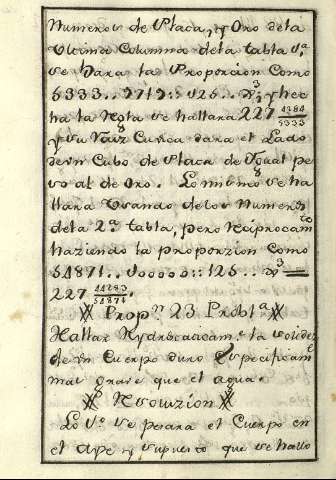 Numeros de Placa, y Oro dela
Ultima Columna dela tabla 1ª
se hara la Proporcion Como
5333.. 9719:: 125.. 3 y hec
ha la Regla se hallara 227 4284/5333
y su Raiz Cubica dara el Lado
de un Cubo de Placa de Ygual pe
so al de Oro. Lo mismo se ha
llara Usando delos Numeros
dela 2ª tabla, pero Reciprocamte
haziendo la proporzion Como
54871.. 100000:: 125..
227 44283/54871.
Propon 23 Problª
Hallar Hydrostaticamte la solidez
de un Cuerpo duro Especificamte
mas grave que el agua.
Resoluzion
Lo 1º se pesara el Cuerpo en
el Ayre y supuesto que se hallo